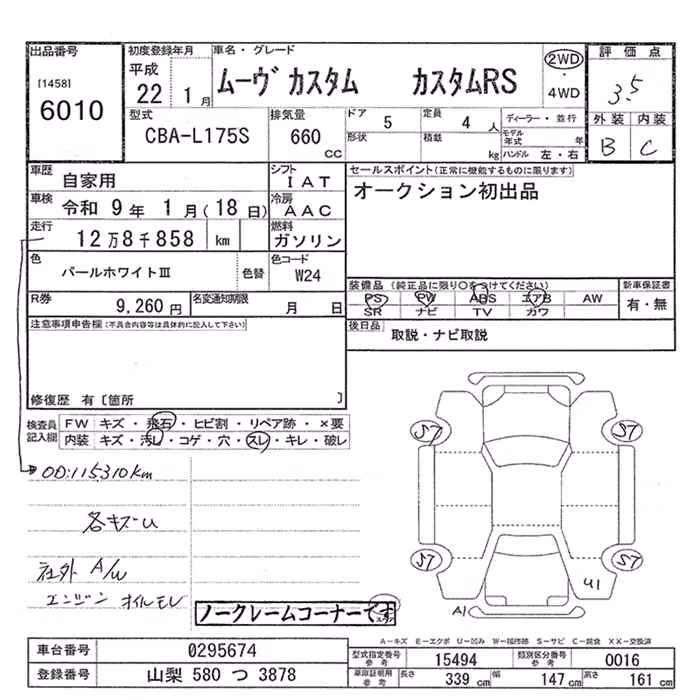 出品番号
[1458]
6010
初度登録年月
平成
22 1月
車名・グレード
ムーヴ カスタム カスタムRS
2WD
・
4WD
評価点
3.5
外装 内装
B C
型式
CBA-L175S
排気量
660
CC
ドア 5
定員 4 人
ディーラー・並行
形状
積載 kg
モデル年式 年
ハンドル 左・右
車歴
自家用
シフト
IAT
セールスポイント(正常に機能するものに限ります)
オークション初出品
車検
令和 9年 1月(18日)
冷房
AAC
走行
12万8千858 km
燃料
ガソリン
色
パールホワイトⅢ
色替
色コード
W24
装備品(純正品に限り○をつけてください)
新車保証書
PS PW ABS エアB AW
SR ナビ TV カワ
有・無
R券
9,260円
名変通知期限
月 日
後日品
取説・ナビ取説
注意事項申告欄(不具合内容等は具体的に記入して下さい)
修復歴 有〔箇所 〕
検査員
記入欄
FW キズ・飛石・ヒビ割・リペア跡・×要
内装 キズ・汚レ・コゲ・穴・スレ・キレ・破レ
OD:115310km
各キズU
社外 A/W
エンジン オイルモレ
ノークレームコーナーです
S7 S7
S7 S7
U1
A1
A-キズ E-エクボ U-凹み W-補修跡 S-サビ C-腐食 XX-交換済
車台番号 0295674
型式指定番号
参考
15494
類別区分番号
参考
0016
登録番号 山梨 580 つ 3878
車庫証明用
参考
長さ 339 cm 幅 147 cm 高さ 161 cm